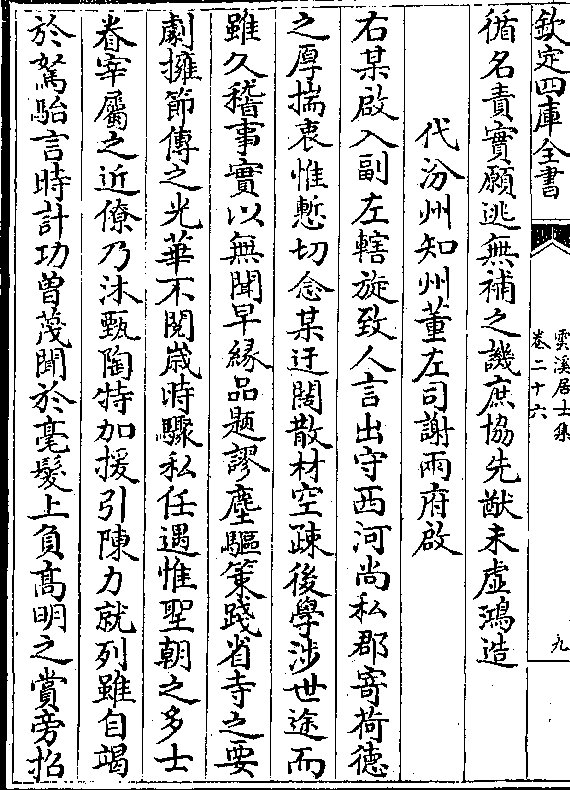 欽定四庫全書
雲溪居士集
卷二十六
九
循名責實願逃無補之譏庶協先猷未虛鴻造
代汾州知州董左司謝兩府啟
右某啟入副左轄旋致人言出守西河尚私郡寄荷德
之厚揣衷惟慙切念某迂闊散材空疎後學涉世途而
雖久稽事實以無聞早緣品題謬塵驅策踐省寺之要
劇擁節傳之光華不閱歲時驟私任遇惟聖朝之多士
眷宰屬之近僚乃沐甄陶特加援引陳力就列雖自竭
於駑駘言時計功曾蔑聞於毫髮上負高明之賞旁招